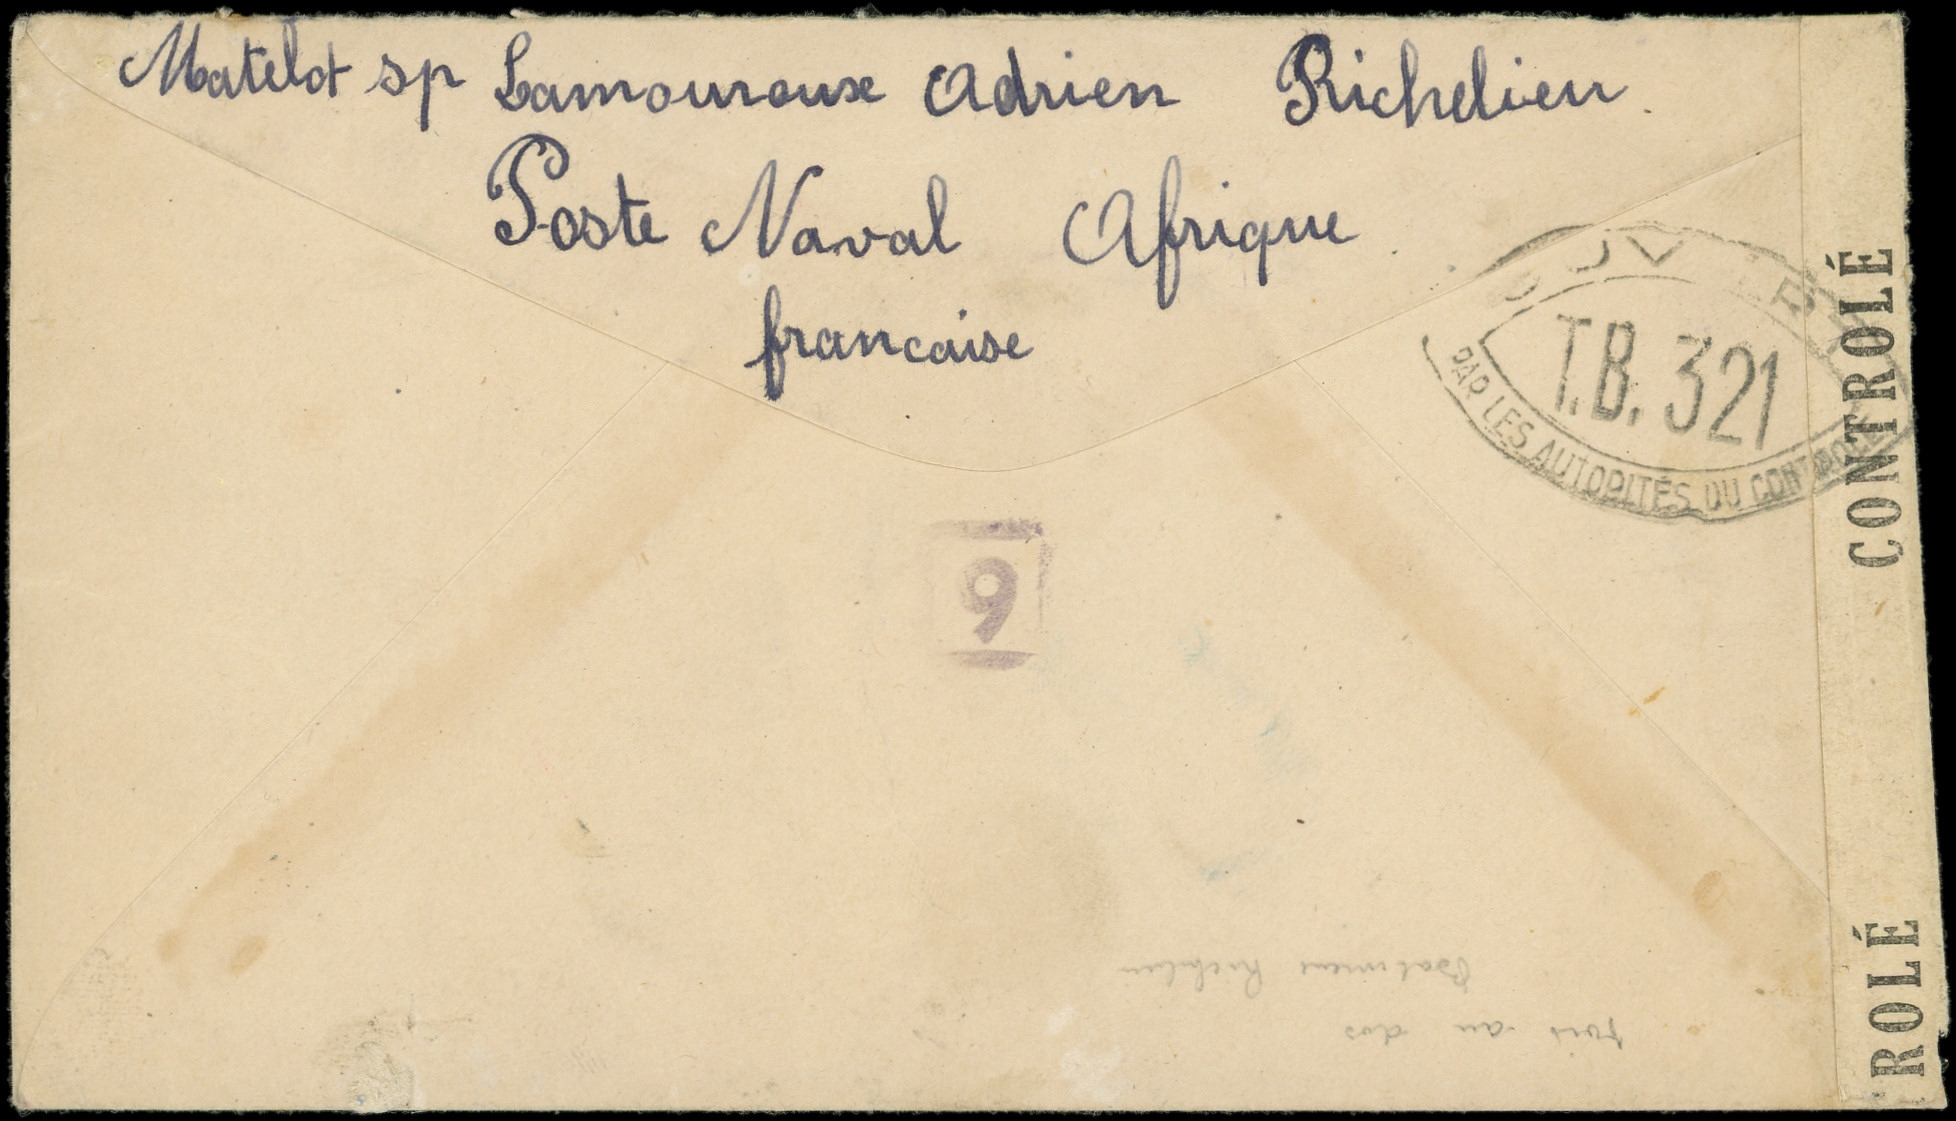 Matelot sp Lamouroux Adrien Richelieu.
Poste Naval Afrique
francaise
T.B. 321
PAR LES AUTORITÉS DU CONTROLE
CONTROLÉ
9
Batiment Richelieu
voir au dos
ROLÉ